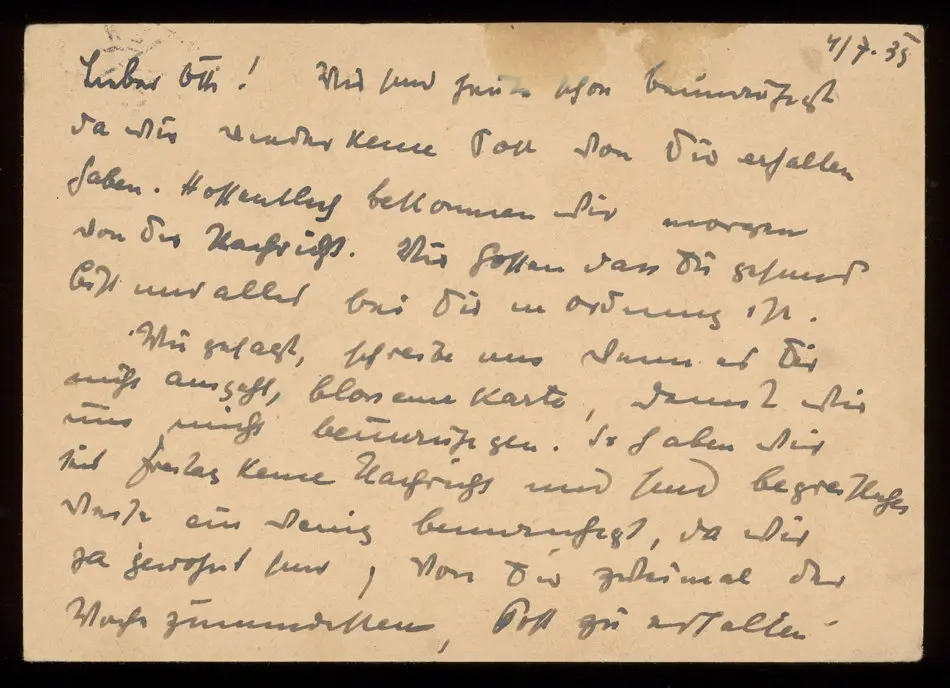 4/7. 35
Lieber Otti! Wir sind heute schon beunruhigt
da wir wieder keine Post von Dir erhalten
haben. Hoffentlich bekommen wir morgen
von Dir Nachricht. Wir hoffen dass Du gesund
bist und alles bei Dir in Ordnung ist.
Wie gesagt, schreibe uns wenn es Dir
nicht ausgeht, blos eine Karte, damit wir
uns nicht beunruhigen. So haben wir
seit freitag keine Nachricht und sind begreiflicher
weise ein wenig beunruhigt, da wir
ja gewohnt sind, von Dir zweimal der
Woche zumindesten, Post zu erhalten